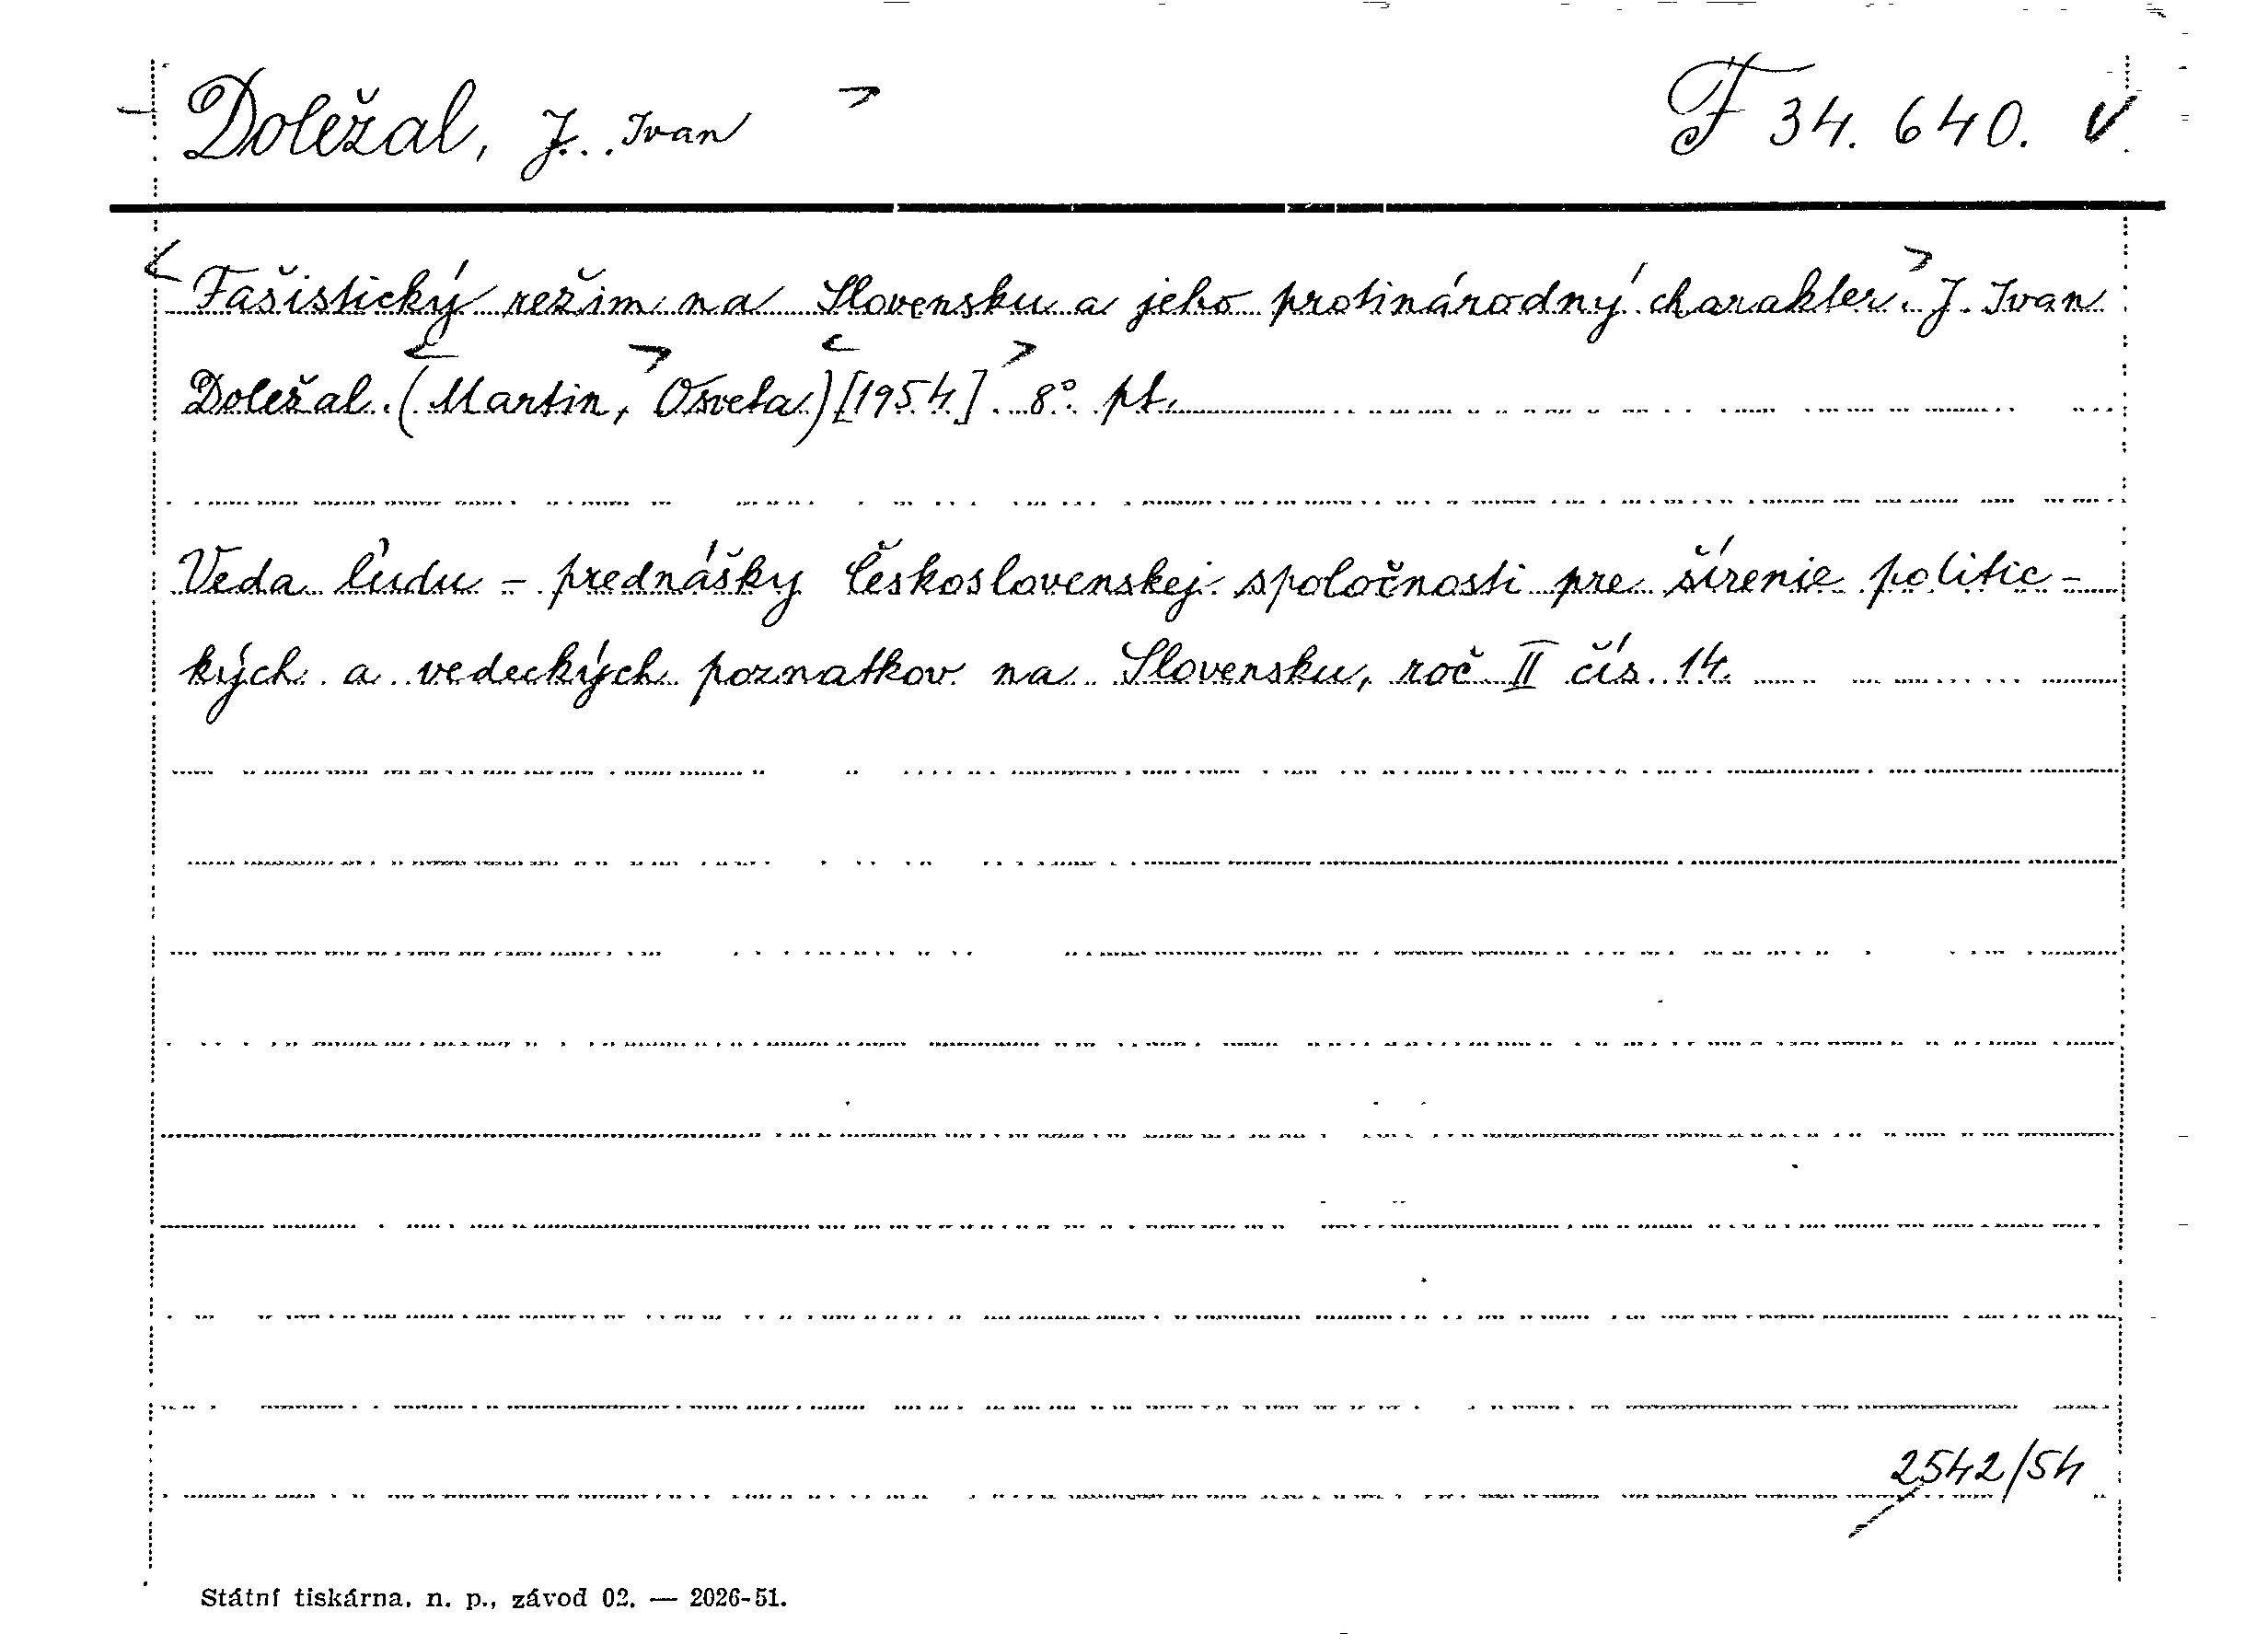 Doležal, J. Ivan F 34.640. V
Fašistický režim na Slovensku a jeho protinárodný charakter. J. Ivan
Doležal. (Martin, Osveta) [1954]. 8°. pt.
Veda ľudu - prednášky Československej spoločnosti pre šírenie politic-
kých a vedeckých poznatkov na Slovensku, roč II čís. 14.
2542/54
Státní tiskárna, n. p., závod 02. — 2026-51.